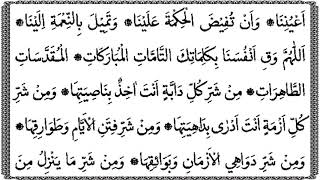 اَعْيُنِنَا * وَاَنْ تُفِيْضَ الْحِكْمَةَ عَلَيْنَا * وَتُمِيْلَ بِالنِّعْمَةِ اِلَيْنَا *
اَللّٰهُمَّ وَقِ اَنْفُسَنَا بِكَلِمَاتِكَ التَّامَّاتِ الْمُبَارَكَاتِ * الْمُقَدَّسَاتِ
الطَّاهِرَاتِ * مِنْ شَرِّ كُلِّ دَابَّةٍ اَنْتَ اٰخِذٌ بِنَاصِيَتِهَا * وَمِنْ شَرِّ
كُلِّ اَزْمَةٍ اَنْتَ اَدْرٰى بِدَاهِيَتِهَا * وَمِنْ شَرِّ فِتَنِ الْاَيَّامِ وَطَوَارِقِهَا *
وَمِنْ شَرِّ دَوَاهِي الْاَزْمَانِ وَبَوَائِقِهَا * وَمِنْ شَرِّ مَا يَنْزِلُ مِنَ